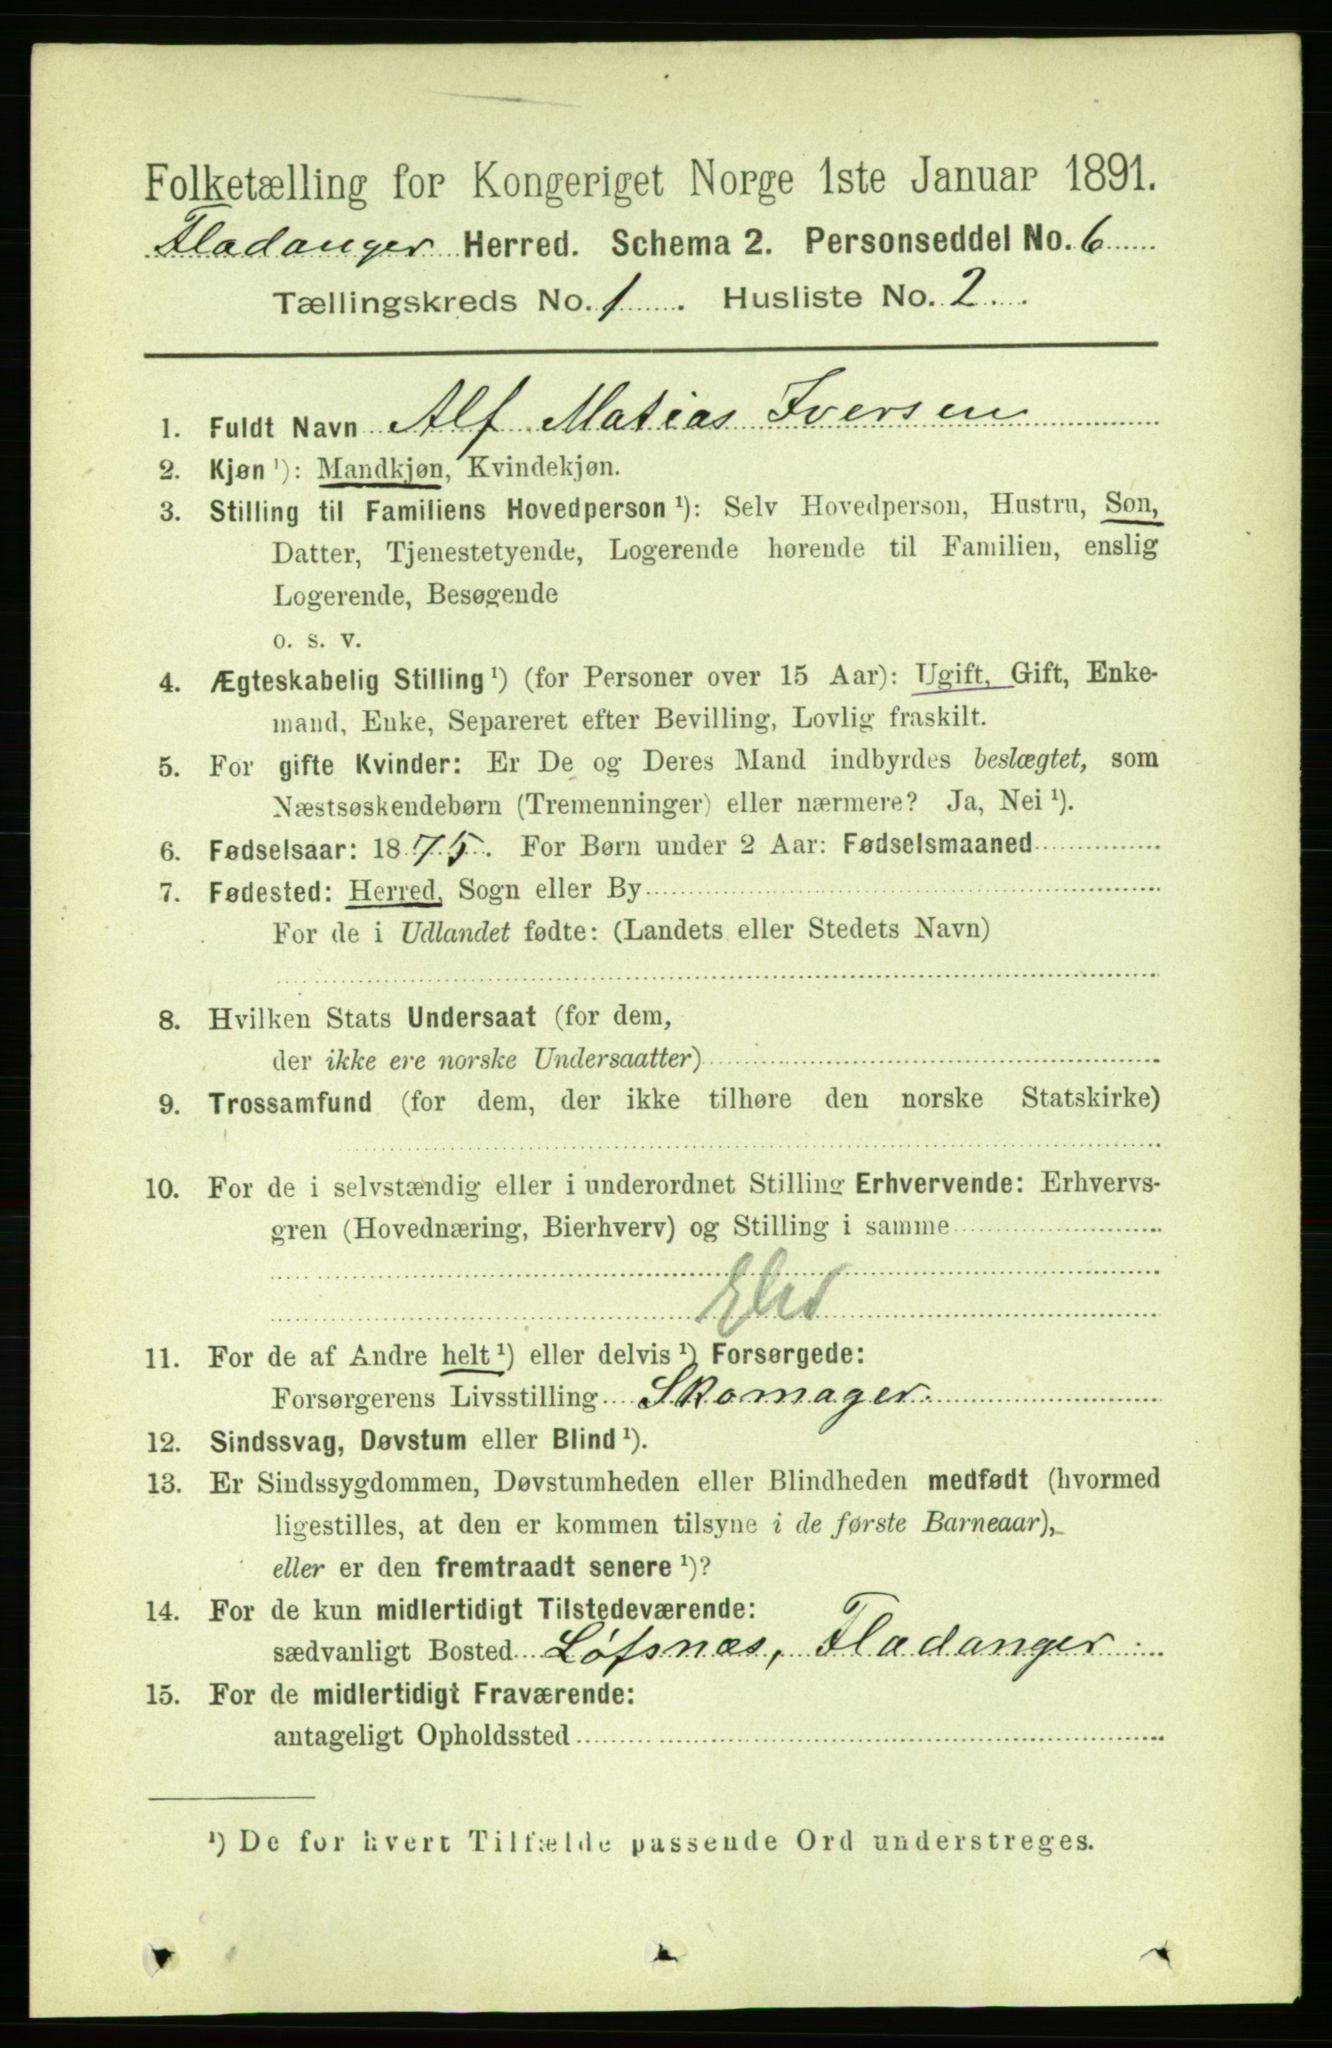 Folketælling for Kongeriget Norge 1ste Januar 1891.
Fladanger Herred. Schema 2. Personseddel No. 6
Tællingskreds No. 1. Husliste No. 2.
1. Fuldt Navn Alf Matias Iversen
2. Kjøn ¹): Mandkjøn, Kvindekjøn.
3. Stilling til Familiens Hovedperson ¹): Selv Hovedperson, Hustru, Søn,
Datter, Tjenestetyende, Logerende hørende til Familien, enslig
Logerende, Besøgende
o. s. v.
4. Ægteskabelig Stilling ¹) (for Personer over 15 Aar): Ugift, Gift, Enke-
mand, Enke, Separeret efter Bevilling, Lovlig fraskilt.
5. For gifte Kvinder: Er De og Deres Mand indbyrdes beslægtet, som
Næstsøskendebørn (Tremenninger) eller nærmere? Ja, Nei ¹).
6. Fødselsaar: 1875. For Børn under 2 Aar: Fødselsmaaned
7. Fødested: Herred, Sogn eller By
For de i Udlandet fødte: (Landets eller Stedets Navn)
8. Hvilken Stats Undersaat (for dem,
der ikke ere norske Undersaatter)
9. Trossamfund (for dem, der ikke tilhøre den norske Statskirke)
10. For de i selvstændig eller i underordnet Stilling Erhvervende: Erhvervs-
gren (Hovednæring, Bierhverv) og Stilling i samme
11. For de af Andre helt ¹) eller delvis ¹) Forsørgede:
Forsørgerens Livsstilling Skomager.
12. Sindssvag, Døvstum eller Blind ¹).
13. Er Sindssygdommen, Døvstumheden eller Blindheden medfødt (hvormed
ligestilles, at den er kommen tilsyne i de første Barneaar),
eller er den fremtraadt senere ¹)?
14. For de kun midlertidigt Tilstedeværende:
sædvanligt Bosted Løfsnæs, Fladanger.
15. For de midlertidigt Fraværende:
antageligt Opholdssted
¹) De for hvert Tilfælde passende Ord understreges.